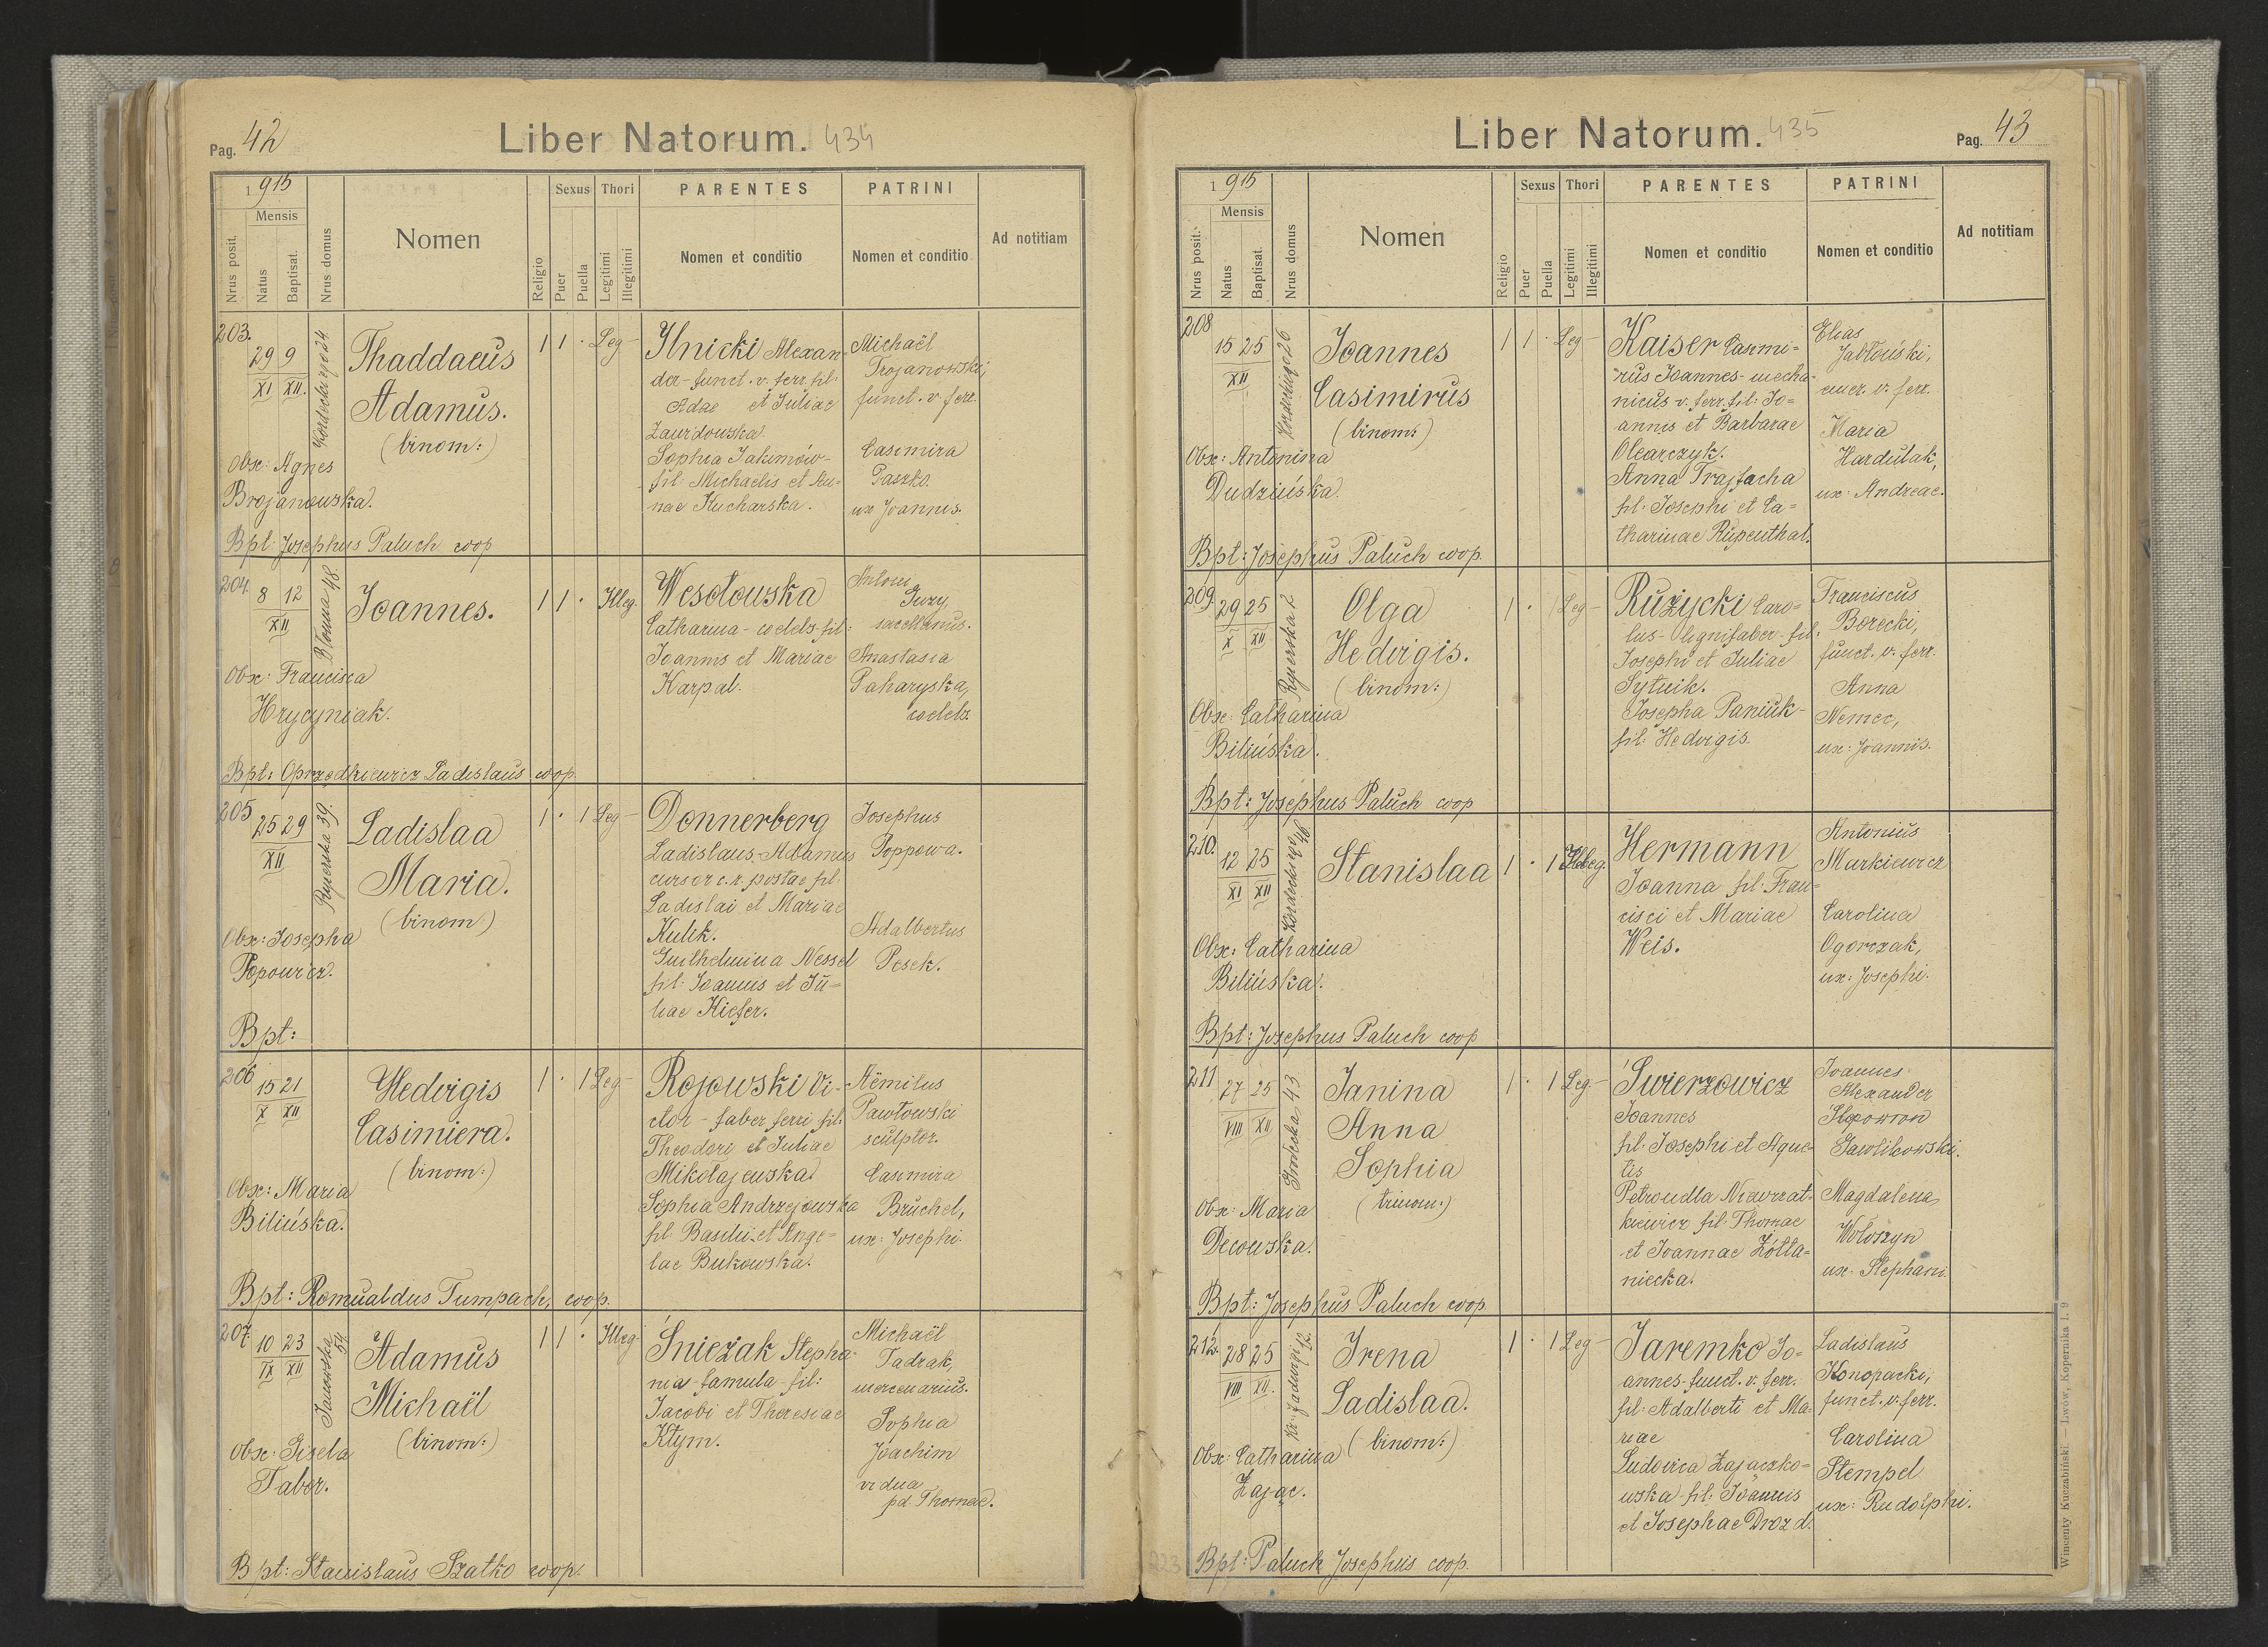 Pag. 42
Liber Natorum. 434
1915
Mensis
Nrus posit.
Natus
Baptisat.
Nrus domus
Nomen
Religio
Sexus
Puer
Puella
Thori
Legitimi
Illegitimi
PARENTES
Nomen et conditio
PATRINI
Nomen et conditio
Ad notitiam
203.
29 9
XI XII.
Kordeckiego 24
Thaddaeus
Adamus.
(binom:)
Obx: Agnes
Brojanowska.
1 1 · Leg -
Ilnicki Alexan-
der - funct. v. ferr. fil:
Adae et Juliae
Zaurdowska
Sophia Jakimów -
fil: Michaelis et An-
nae Kucharska.
Michaël
Trojanowski,
funct. v. ferr.
Casimira
Paszko.
ux Joannis.
Bpt: Josephus Paluch coop
204.
8 12
XII
Błonna 48
Joannes.
1 1 · Illeg.
Wesołowska
Catharina - coelebs - fil:
Joannis et Mariae
Karpal.
Antoni
Guzy,
sacellanus.
Anastasia
Paharyska,
coelebs.
Obx: Francisca
Hrycyniak.
Bpt: Oprzedkiewicz Ladislaus coop.
205
25 29
XII
Rycerska 39.
Ladislaa
Maria.
(binom)
1 · 1 Leg -
Donnerberg
Ladislaus - Adamus
cursor c. r. postae fil.
Ladislai et Mariae
Kulik.
Guilhelmina Nessel
fil: Joannis et Ju-
liae Kiefer.
Josephus
Poppowa.
Adalbertus
Pesek.
Obx: Josepha
Popowicz.
Bpt:
206
15 21
X XII
Hedvigis
Casimiera.
(binom:)
1 · 1 Leg -
Rojowski Vi-
ctor - faber ferri fil:
Theodori et Juliae
Mikołajewska.
Sophia Andrzejowska
fil: Basilii et Ange-
lae Bukowska.
Aëmilus
Pawłowski
sculptor.
Casimira
Bruchel,
ux: Josephi.
Obx: Maria
Bilińska.
Bpt: Romualdus Tumpach, coop.
207.
10 23
IX XII
Janowska 54.
Adamus
Michaël
(binom:)
1 1 · Illeg.
Śnieżak Stepha-
nia - famula - fil:
Jacobi et Theresiae
Kłym.
Michaël
Tadrak,
mercenarius.
Sophia
Joachim
vidua
pd. Thomae.
Obx: Gisela
Tabor.
Bpt: Stanislaus Szatko coop.
Liber Natorum. 435
Pag. 43
1915
Mensis
Nrus posit.
Natus
Baptisat.
Nrus domus
Nomen
Religio
Sexus
Puer
Puella
Thori
Legitimi
Illegitimi
PARENTES
Nomen et conditio
PATRINI
Nomen et conditio
Ad notitiam
208
15 25
XII
Kordeckiego 26
Joannes
Casimirus
(binom:)
1 1 · Leg -
Kaiser Casimi-
rus Joannes - mecha-
nicus v. ferr. fil: Jo-
annis et Barbarae
Olearczyk.
Anna Trajfacha
fil: Josephi et Ca-
tharinae Rupenthal.
Elias
Jabłoński,
emer. v. ferr.
Maria
Hardulak,
ux: Andreae.
Obx: Antonina
Dudzińska.
Bpt: Josephus Paluch coop.
209.
29 25
X XII
Rycerska 2
Olga
Hedvigis.
(binom:)
1 · 1 Leg -
Rużycki Caro-
lus - lignifaber - fil:
Josephi et Juliae
Sytnik.
Josepha Paniuk -
fil: Hedvigis.
Franciscus
Borecki,
funct. v. ferr.
Anna
Nemec,
ux: Joannis.
Obx: Catharina
Bilińska.
Bpt: Josephus Paluch coop
210.
12 25
XI XII
Kordeckiego 46
Stanislaa
1 · 1 Illeg.
Hermann
Joanna fil: Fran-
cisci et Mariae
Weis.
Antonius
Markiewicz
Carolina
Ogorczak,
ux: Josephi.
Obx: Catharina
Bilińska.
Bpt: Josephus Paluch coop
211
27 25
VIII XII
Grodecka 43
Janina
Anna
Sophia
(trinom:)
1 · 1 Leg -
Świerzowicz
Joannes
fil: Josephi et Agne-
tis
Petronella Niewiat-
kiewicz fil: Thomae
et Joannae Żółta-
niecka.
Joannes
Alexander
Ślepowron
Gawlikowski.
Magdalena
Wołoszyn
ux: Stephani.
Obx: Maria
Decowska.
Bpt: Josephus Paluch coop
212.
28 25
VIII XII.
Kr. Jadwigi 12.
Irena
Ladislaa.
(binom:)
1 · 1 Leg -
Jaremko Jo-
annes - funct. v. ferr.
fil: Adalberti et Ma-
riae
Ludovica Zajączko-
wska - fil: Joannis
et Josephae Drozd.
Ladislaus
Konopacki,
funct. v. ferr.
Carolina
Stempel
ux: Rudolphi.
Obx: Catharina
Zając.
Bpt: Paluch Josephus coop.
Wincenty Kuczabiński. — Lwów, Kopernika l. 9